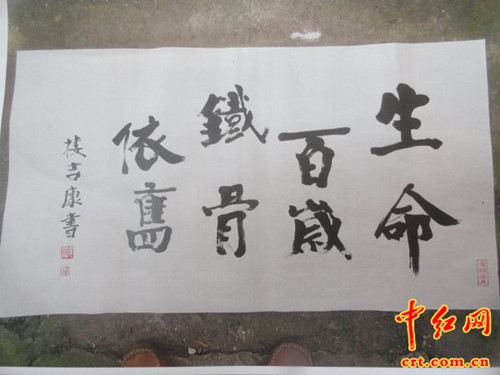 生命
百歲
鐵骨
依舊
楼吉康書
中红网
crt.com.cn